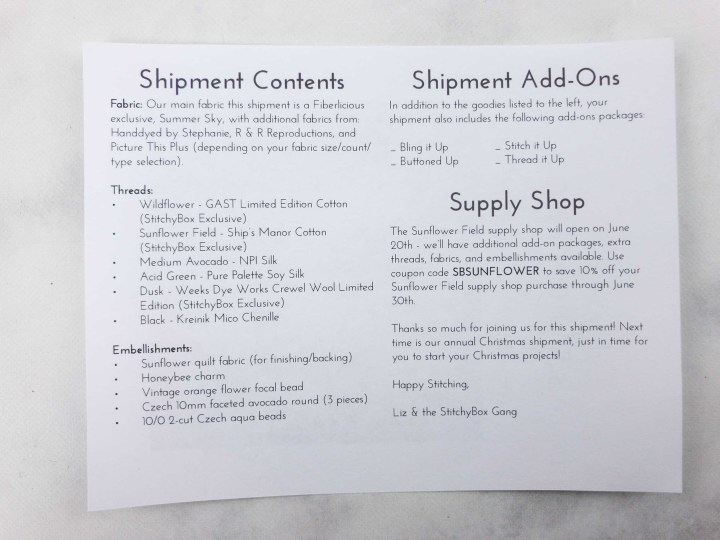 Shipment Contents
Fabric: Our main fabric this shipment is a Fiberlicious
exclusive, Summer Sky, with additional fabrics from:
Handdyed by Stephanie, R & R Reproductions, and
Picture This Plus (depending on your fabric size/count/
type selection).
Threads:
• Wildflower - GAST Limited Edition Cotton
(StitchyBox Exclusive)
• Sunflower Field - Ship's Manor Cotton
(StitchyBox Exclusive)
• Medium Avocado - NPI Silk
• Acid Green - Pure Palette Soy Silk
• Dusk - Weeks Dye Works Crewel Wool Limited
Edition (StitchyBox Exclusive)
• Black - Kreinik Mico Chenille
Embellishments:
• Sunflower quilt fabric (for finishing/backing)
• Honeybee charm
• Vintage orange flower focal bead
• Czech 10mm faceted avocado round (3 pieces)
• 10/0 2-cut Czech aqua beads
Shipment Add-Ons
In addition to the goodies listed to the left, your
shipment also includes the following add-ons packages:
_ Bling it Up _ Stitch it Up
_ Buttoned Up _ Thread it Up
Supply Shop
The Sunflower Field supply shop will open on June
20th - we'll have additional add-on packages, extra
threads, fabrics, and embellishments available. Use
coupon code SBSUNFLOWER to save 10% off your
Sunflower Field supply shop purchase through June
30th.
Thanks so much for joining us for this shipment! Next
time is our annual Christmas shipment, just in time for
you to start your Christmas projects!
Happy Stitching,
Liz & the StitchyBox Gang